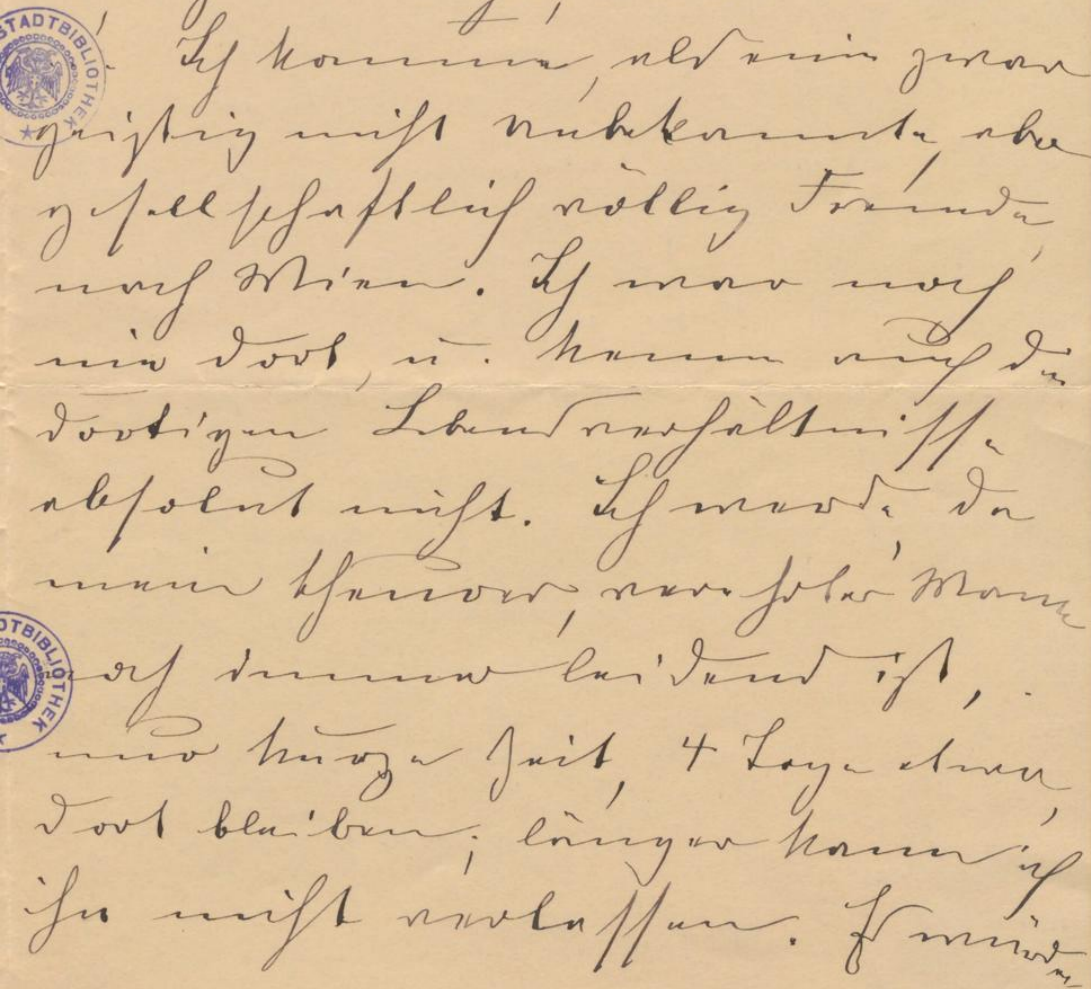 STADTBIBLIOTHEK
Ich komme, als eine zwar
geistig nicht unbekannte, aber
gesellschaftlich völlig Fremde,
nach Wien. Ich war noch
nie dort, u. kenne auch die
dortigen Lebensverhältnisse
absolut nicht. Ich werde, da
mein theurer, verehrter Mann
noch immer leidend ist,
nur kurze Zeit, 4 Tage etwa,
dort bleiben; länger kann ich
ihn nicht verlassen. Es würde